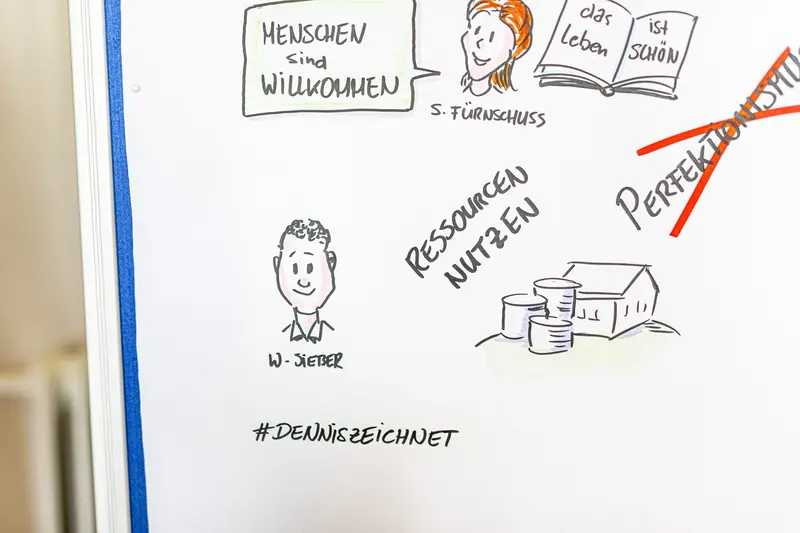 MENSCHEN
sind
WILLKOMMEN
S. FÜRNSCHUSS
das
Leben
ist
SCHÖN
PERFEKTIONISMUS
RESSOURCEN
NUTZEN
W. SIEBER
#DENNISZEICHNET